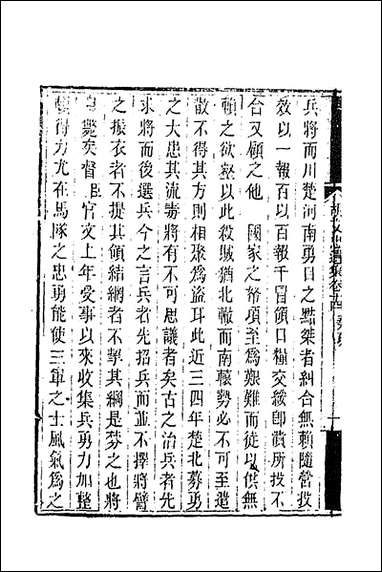 兵將而川楚河南勇目之點桀者糾合無賴隨營投
效以一報百以百報千冒領口糧交綏卽潰所投不
合又顧之他　國家之帑項至爲艱難而徒以供無
賴之欲壑以此殺賊猶北轍而南轅勢必不可至遣
散不得其方則相聚爲盜耳此近三四年楚北募勇
之大患其流毒將有不可思議者矣古之治兵者先
求將而後選兵今之言兵者先招兵而並不擇將譬
之振衣者不提其領結網者不挈其綱是棼之也將
自斃矣督臣官文上年受事以來收集兵勇力加整
得力尤在馬隊之忠勇能使三軍之士風氣爲之